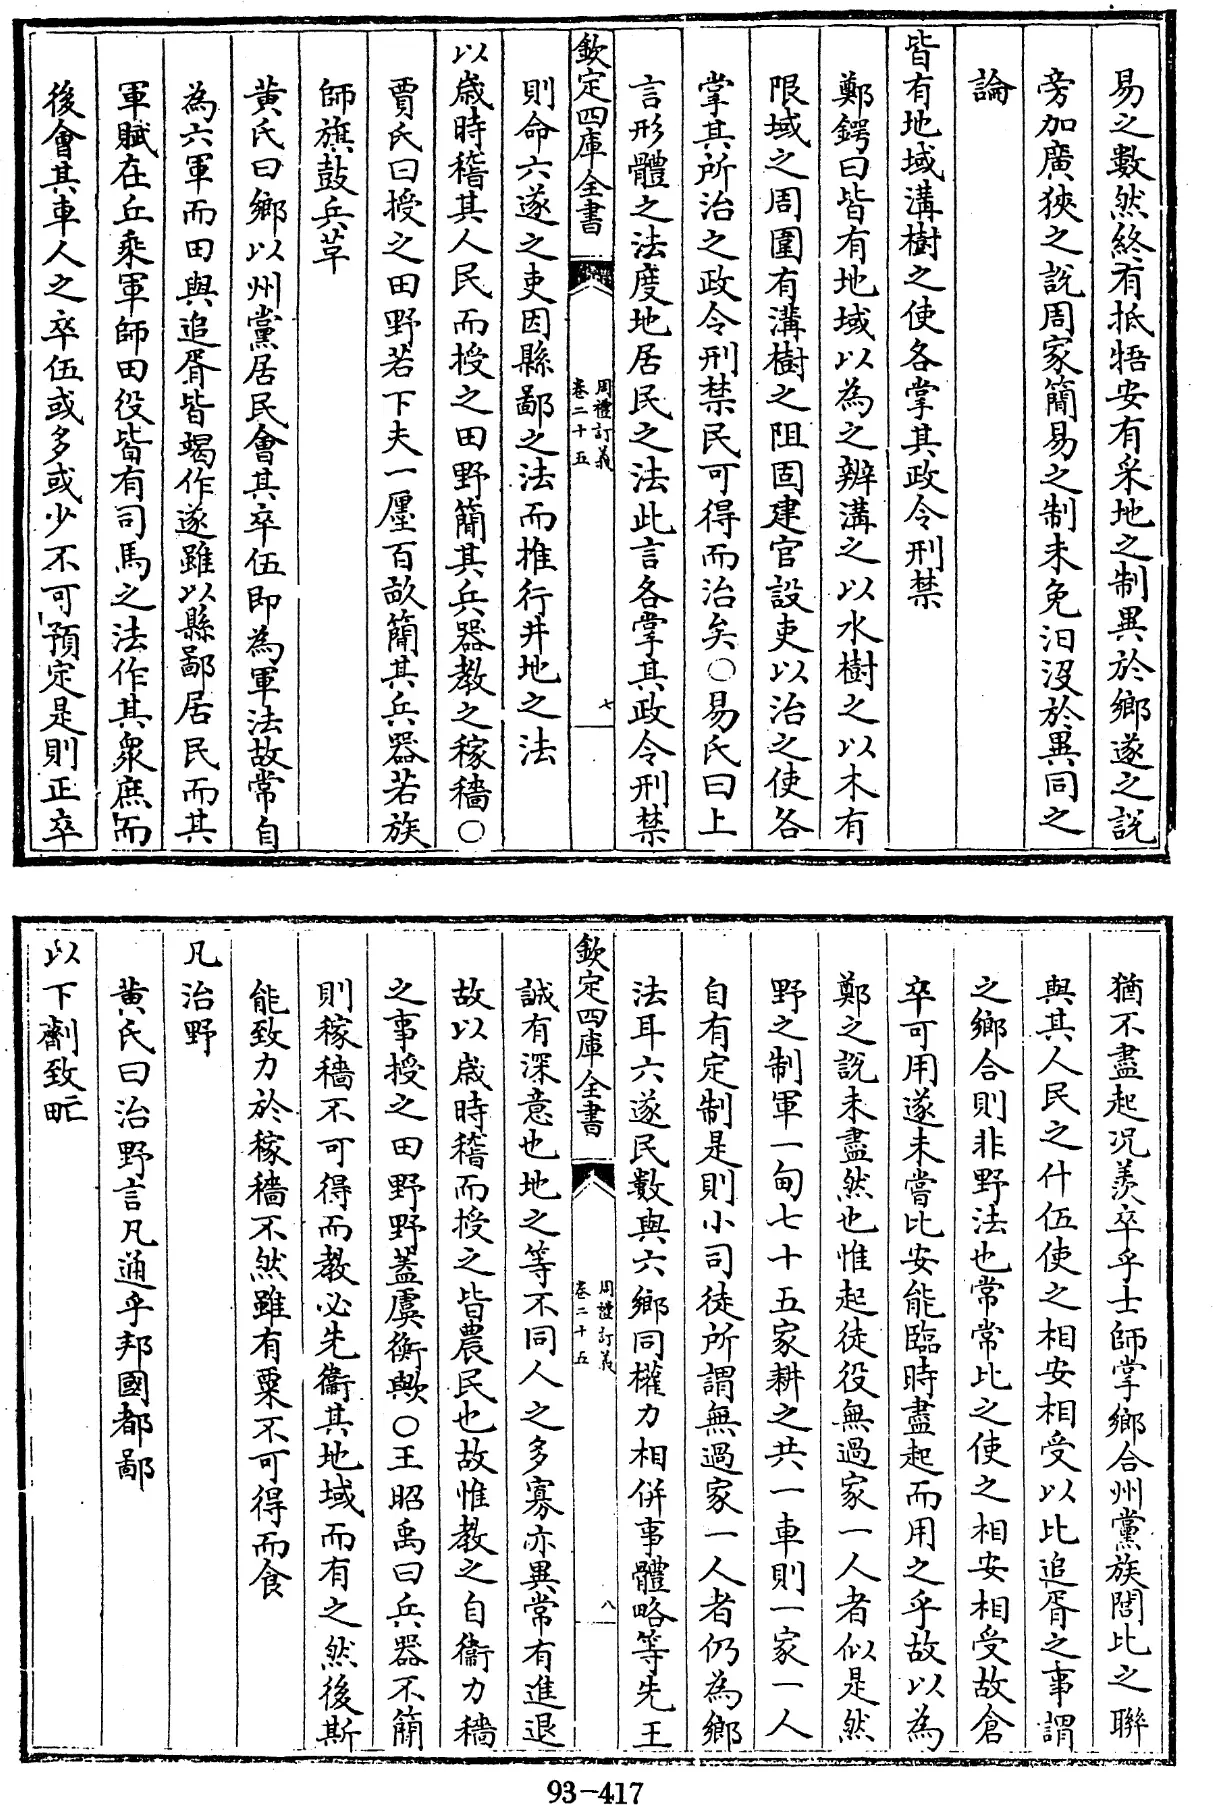 易之數然終有抵牾安有采地之制異於鄉遂之説
旁加廣狹之説周家簡易之制未免汨沒於異同之
論
皆有地域溝樹之使各掌其政令刑禁
鄭鍔曰皆有地域以為之辨溝之以水樹之以木有
限域之周圍有溝樹之阻固建官設吏以治之使各
掌其所治之政令刑禁民可得而治矣○易氏曰上
言形體之法度地居民之法此言各掌其政令刑禁
欽定四庫全書 周禮訂義卷二十五 七
則命六遂之吏因縣鄙之法而推行井地之法
以歲時稽其人民而授之田野簡其兵器教之稼穡○
賈氏曰授之田野若下夫一廛百畝簡其兵器若族
師旗鼓兵革
黄氏曰鄉以州黨居民會其卒伍即為軍法故常自
為六軍而田與追胥皆竭作遂雖以縣鄙居民而其
軍賦在丘乘軍師田役皆有司馬之法作其衆庶而
後會其車人之卒伍或多或少不可預定是則正卒
猶不盡起况羨卒乎士師掌鄉合州黨族閭比之聯
與其人民之什伍使之相安相受以比追胥之事謂
之鄉合則非野法也常常比之使之相安相受故倉
卒可用遂未嘗比安能臨時盡起而用之乎故以為
鄭之説未盡然也惟起徒役無過家一人者似是然
野之制軍一甸七十五家耕之共一車則一家一人
自有定制是則小司徒所謂無過家一人者仍為鄉
法耳六遂民數與六鄉同權力相併事體略等先王
欽定四庫全書 周禮訂義卷二十五 八
誠有深意也地之等不同人之多寡亦異常有進退
故以歲時稽而授之皆農民也故惟教之自衞力穡
之事授之田野野蓋虞衡歟○王昭禹曰兵器不簡
則稼穡不可得而教必先衞其地域而有之然後斯
能致力於稼穡不然雖有粟不可得而食
凡治野
黄氏曰治野言凡通乎邦國都鄙
以下劑致甿
93-417